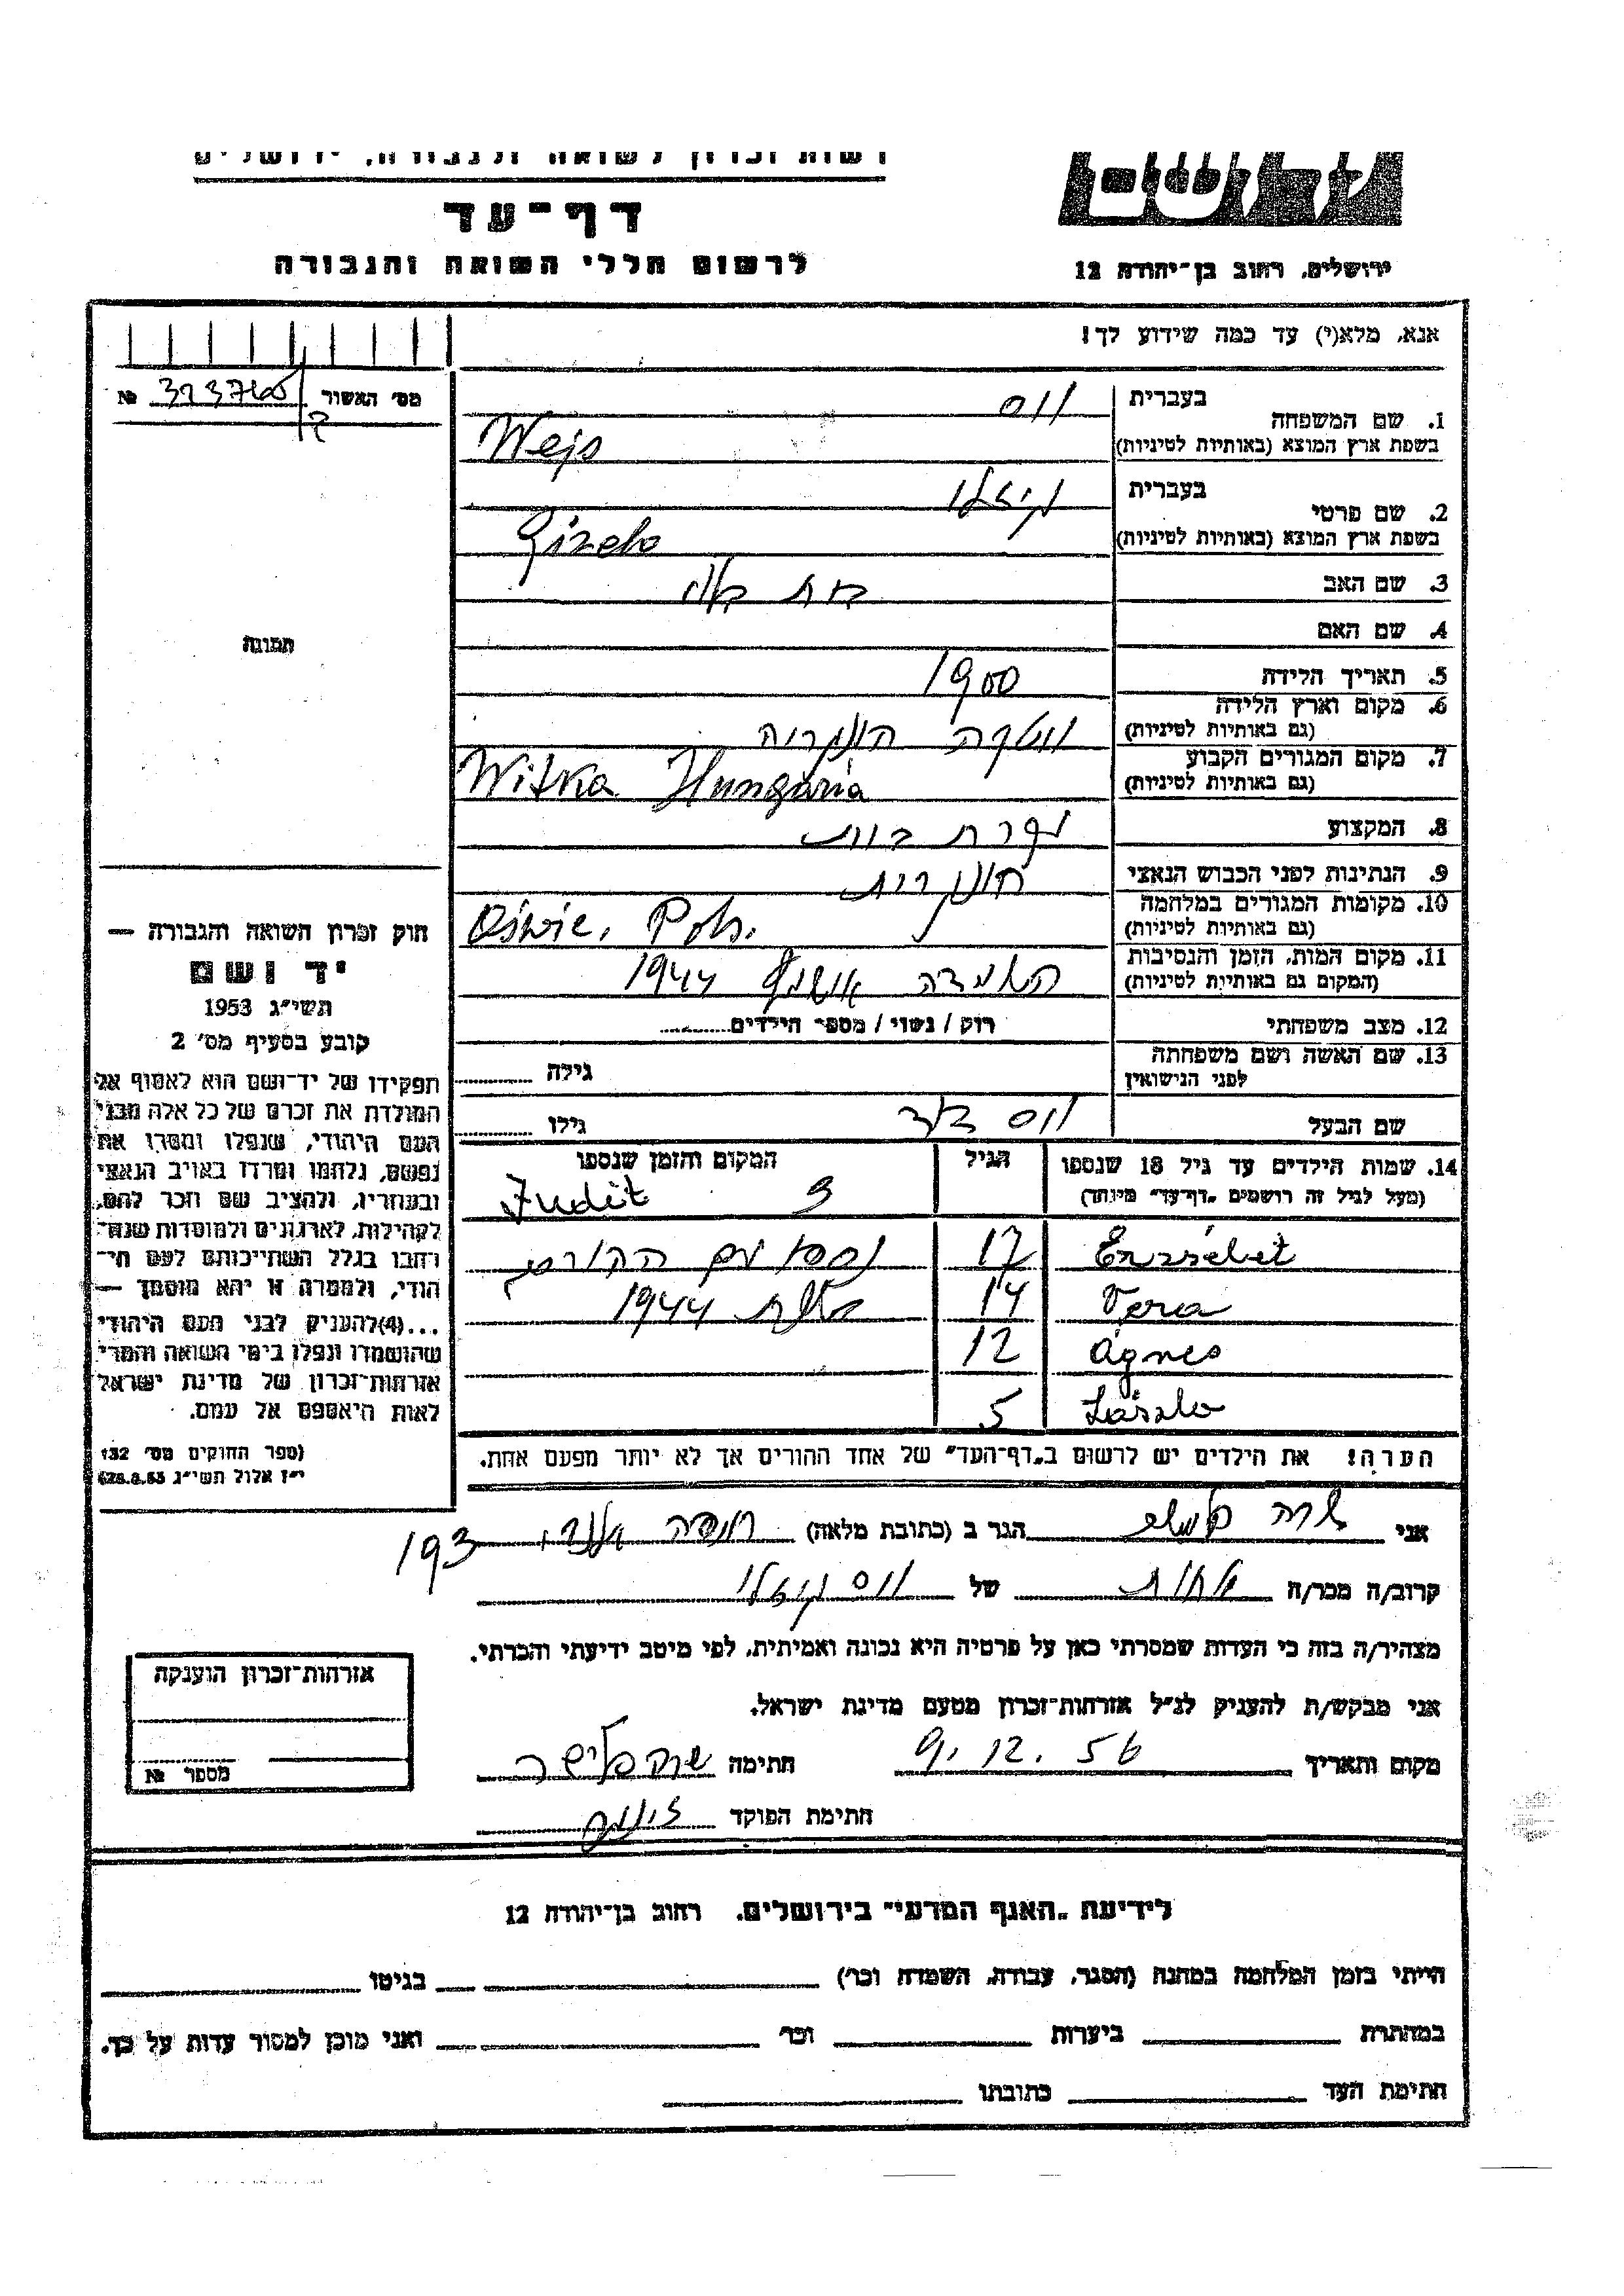 רשות זכרון לשואה ולגבורה, ירושלים
דף-עד
לרשום חללי השואה והגבורה
ירושלים, רחוב בן-יהודה 12
אנא, מלא(י) עד כמה שידוע לך!
מס' האשור
№
בעברית
1. שם המשפחה
וייס
בשפת ארץ המוצא (באותיות לטיניות) Wejs
בעברית
2. שם פרטי
גיזלו
בשפת ארץ המוצא (באותיות לטיניות) Gizela
3. שם האב
בת
4. שם האם
5. תאריך הלידה 1900
6. מקום וארץ הלידה
(גם באותיות לטיניות) ויטקה הונגריה
7. מקום המגורים הקבוע
(גם באותיות לטיניות) Witka Hungaria
8. המקצוע עקרת בית
9. הנתינות לפני הכבוש הנאצי הונגרית
10. מקומות המגורים במלחמה
(גם באותיות לטיניות) Oświe. Pols.
11. מקום המות, הזמן והנסיבות
(המקום גם באותיות לטיניות) השמדה 1944
12. מצב משפחתי רוק / נשוי / מספר הילדים
13. שם האשה ושם משפחתה
לפני הנישואין
גילה
שם הבעל וייס גילו
14. שמות הילדים עד גיל 18 שנספו הגיל המקום והזמן שנספו
(מעל לגיל זה רושמים "דף-עד" מיוחד)
Judit
Erzsébet 17 נספו עם ההורים
Vera 14 1944
Ágnes 12
László 5
הערה! את הילדים יש לרשום ב"דף-העד" של אחד ההורים אך לא יותר מפעם אחת.
תמונה
חוק זכרון השואה והגבורה —
יד ושם
תשי"ג 1953
קובע בסעיף מס' 2
תפקידו של יד-ושם הוא לאסוף אל
המולדת את זכרם של כל אלה מבני
העם היהודי, שנפלו ומסרו את
נפשם, נלחמו ומרדו באויב הנאצי
ובעוזריו, ולהציב שם וזכר להם,
לקהילות, לארגונים ולמוסדות שנח-
רבו בגלל השתייכותם לעם הי-
הודי, ולמטרה זו יהא מוסמך —
...(4) להעניק לבני העם היהודי
שהושמדו ונפלו בימי השואה והמרי
אזרחות-זכרון של מדינת ישראל
לאות היאספם אל עמם.
(ספר החוקים מס' 132
י"ז אלול תשי"ג 28.8.53)
אני שרה הגר ב (כתובת מלאה) 193
קרוב/ה מכר/ה אחות של וייס גיזלו
מצהיר/ה בזה כי העדות שמסרתי כאן על פרטיה היא נכונה ואמיתית, לפי מיטב ידיעתי והכרתי.
אני מבקש/ת להעניק לנ"ל אזרחות-זכרון מטעם מדינת ישראל.
מקום ותאריך 9.12.56 חתימה
חתימת הפוקד
אזרחות-זכרון הוענקה
מספר №
לידיעת "האגף המדעי" בירושלים. רחוב בן-יהודה 12
הייתי בזמן המלחמה במחנה (הסגר, עבודה, השמדה וכו') בגיטו
במחתרת ביערות וכו' ואני מוכן למסור עדות על כך.
חתימת העד כתובתו